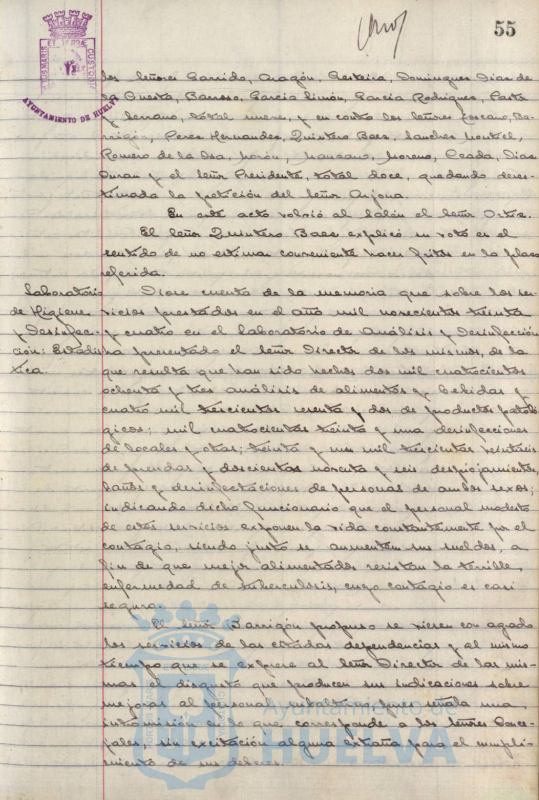 55
PORTUS MARIS ET TERRAE CUSTODIA
AYUNTAMIENTO DE HUELVA
los Señores Garrido, Aragón, Terteira, Dominguez Diaz de
la Cuesta, Barroso, García Limón, García Rodriguez, Pasta
y Serrano, total nueve, y en contra los Señores Lozcano, Ba-
rrigón, Perez Hernandez, Quintero Baez, Sanchez Montiel,
Romero de la Osa, Morón, Manzano, Moreno, Ceada, Diaz
Duran y el Señor Presidente, total doce, quedando deses-
timada la petición del Señor Arjona.
En este acto volvió al salón el Señor Ortiz.
El Señor Quintero Baez explicó su voto en el
sentido de no estimar conveniente hacer fritos en la plaza
referida.
Laboratorio
de Higiene
y Desinfec-
ción: Estadís-
tica.
Diose cuenta de la memoria que sobre los ser-
vicios prestados en el año mil novecientos treinta
y cuatro en el Laboratorio de Análisis y Desinfección
ha presentado el Señor Director de los mismos, de la
que resulta que han sido hechos dos mil cuatrocientos
ochenta y tres análisis de alimentos y bebidas y
cuatro mil trescientos sesenta y dos de productos patoló-
gicos; mil cuatrocientas treinta y una desinfecciones
de locales y otras; treinta y un mil trescientas veintiseis
de prendas y doscientas noventa y seis despiojamientos,
baños y desinfectaciones de personas de ambos sexos;
indicando dicho funcionario que el personal modesto
de estos servicios exponen la vida constantemente por el
contagio, siendo justo se aumenten sus sueldos, a
fin de que mejor alimentados resistan la terrible
enfermedad de tuberculosis, cuyo contagio es casi
seguro.
El Señor Barrigón propuso se viesen con agrado
los servicios de las citadas dependencias y al mismo
tiempo que se exprese al Señor Director de las mis-
mas el disgusto que producen sus indicaciones sobre
mejoras al personal, que señala una
intromisión en lo que corresponde a los Señores Conce-
jales, sin excitación alguna extraña para el cumpli-
miento de sus deberes.
Ayuntamiento de
HUELVA